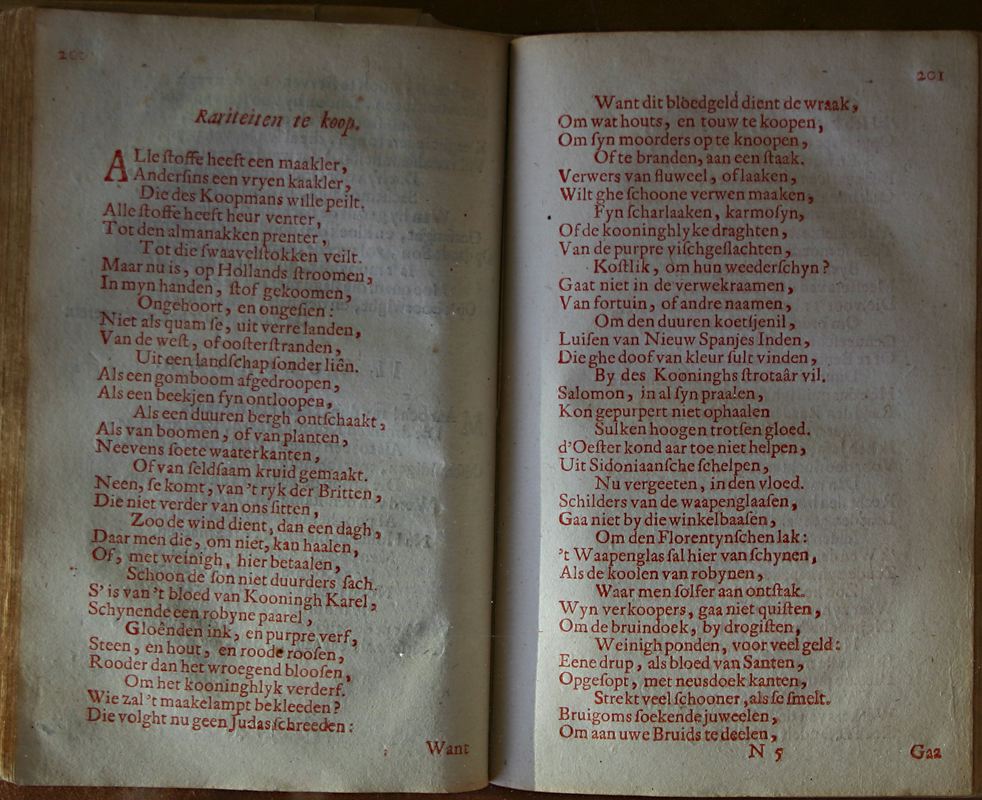 Rariteiten te koop.
ALle ſtoffe heeft een maakler,
Anderſins een vryen kaakler,
Die des Koopmans wille peilt.
Alle ſtoffe heeft heur venter,
Tot den almanakken prenter,
Tot die ſwaavelſtokken veilt.
Maar nu is, op Hollands ſtroomen,
In myn handen, ſtof gekoomen,
Ongehoort, en ongeſien:
Niet als quam ſe, uit verre landen,
Van de weſt, of ooſterſtranden,
Uit een landſchap ſonder liên.
Als een gomboom afgedroopen,
Als een beekjen ſyn ontloopen,
Als een duuren bergh ontſchaakt,
Als van boomen, of van planten,
Neevens ſoete waaterkanten,
Of van ſeldſaam kruid gemaakt.
Neen, ſe komt, van 't ryk der Britten,
Die niet verder van ons ſitten,
Zoo de wind dient, dan een dagh,
Daar men die, om niet, kan haalen,
Of, met weinigh, hier betaalen,
Schoon de ſon niet duurders ſach.
S' is van 't bloed van Kooningh Karel,
Schynende een robyne paarel,
Gloênden ink, en purpre verf,
Steen, en hout, en roode rooſen,
Rooder dan het wroegend blooſen,
Om het kooninghlyk verderf.
Wie zal 't maakelampt bekleeden?
Die volght nu geen Judas ſchreeden:
Want
201
Want dit bloedgeld dient de wraak,
Om wat houts, en touw te koopen,
Om ſyn moorders op te knoopen,
Of te branden, aan een ſtaak.
Verwers van fluweel, of laaken,
Wilt ghe ſchoone verwen maaken,
Fyn ſcharlaaken, karmoſyn,
Of de kooninghlyke draghten,
Van de purpre viſchgeſlachten,
Koſtlik, om hun weederſchyn?
Gaat niet in de verwekraamen,
Van fortuin, of andre naamen,
Om den duuren koetſjenil,
Luiſen van Nieuw Spanjes Inden,
Die ghe doof van kleur ſult vinden,
By des Kooninghs ſtrotaâr vil.
Salomon, in al ſyn praalen,
Kon gepurpert niet ophaalen
Sulken hoogen trotſen gloed.
d'Oeſter kond aar toe niet helpen,
Uit Sidoniaanſche ſchelpen,
Nu vergeeten, in den vloed.
Schilders van de waapenglaaſen,
Gaa niet by die winkelbaaſen,
Om den Florentynſchen lak:
't Waapenglas ſal hier van ſchynen,
Als de koolen van robynen,
Waar men ſolfer aan ontſtak.
Wyn verkoopers, gaa niet quiſten,
Om de bruindoek, by drogiſten,
Weinigh ponden, voor veel geld:
Eene drup, als bloed van Santen,
Opgeſopt, met neusdoek kanten,
Strekt veel ſchooner, als ſe ſmelt.
Bruigoms ſoekende juweelen,
Om aan uwe Bruids te deelen,
N 5
Gaa